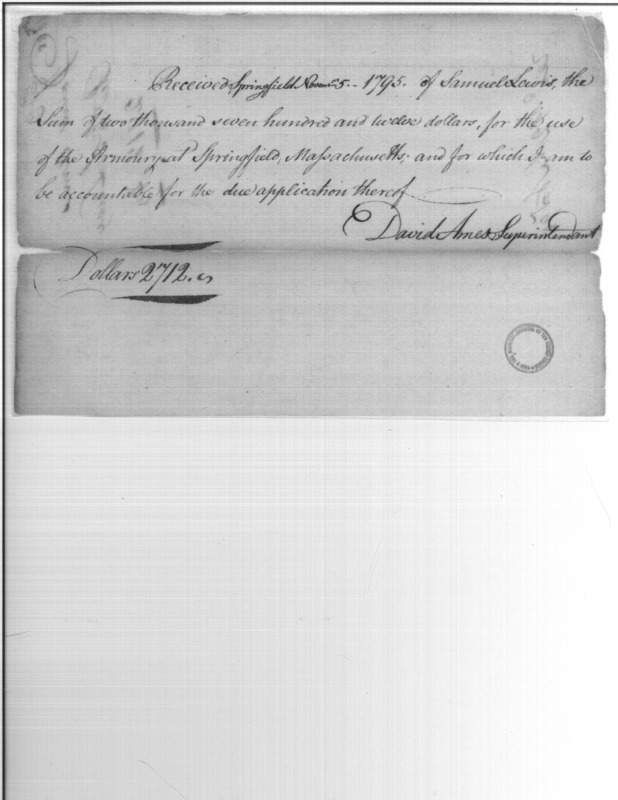 Received Springfield Novemr 5.. 1795. of Samuel Lewis, the
Sum of two thousand seven hundred and twelve dollars, for the use
of the Armoury at Springfield, Massachusetts; and for which I am to
be accountable for the due application thereof
David Ames Superintendant
Dollars 2712.